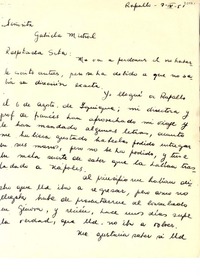 Rapallo - 9-IX-5
Señorita
Gabriela Mistral
Respetada Srta:
Me va a perdonar el no haber
le escrito antes, pero se ha debido a que no sa
bía su dirección exacta.
Yo llegué a Rapallo
el 6 de agosto. de Iquique; mi directora y
prof. de francés han aprovechado mi viaje y
le han mandado algunas letras, asunto
me hubiera gustado haberlas podido entregar
en sus manos, pero no se ha podido, y tuve
la mala suerte de saber que Ud. había tras
ladado a Nápoles.
Al principio me habían di
cho que Ud. iba a regresar, pero
llegaba, hube de presentarme al consulado
en Génova, y recién, hace unos días supe
la verdad, que Ud. no iba a volver.
Me gustaría saber si Ud.